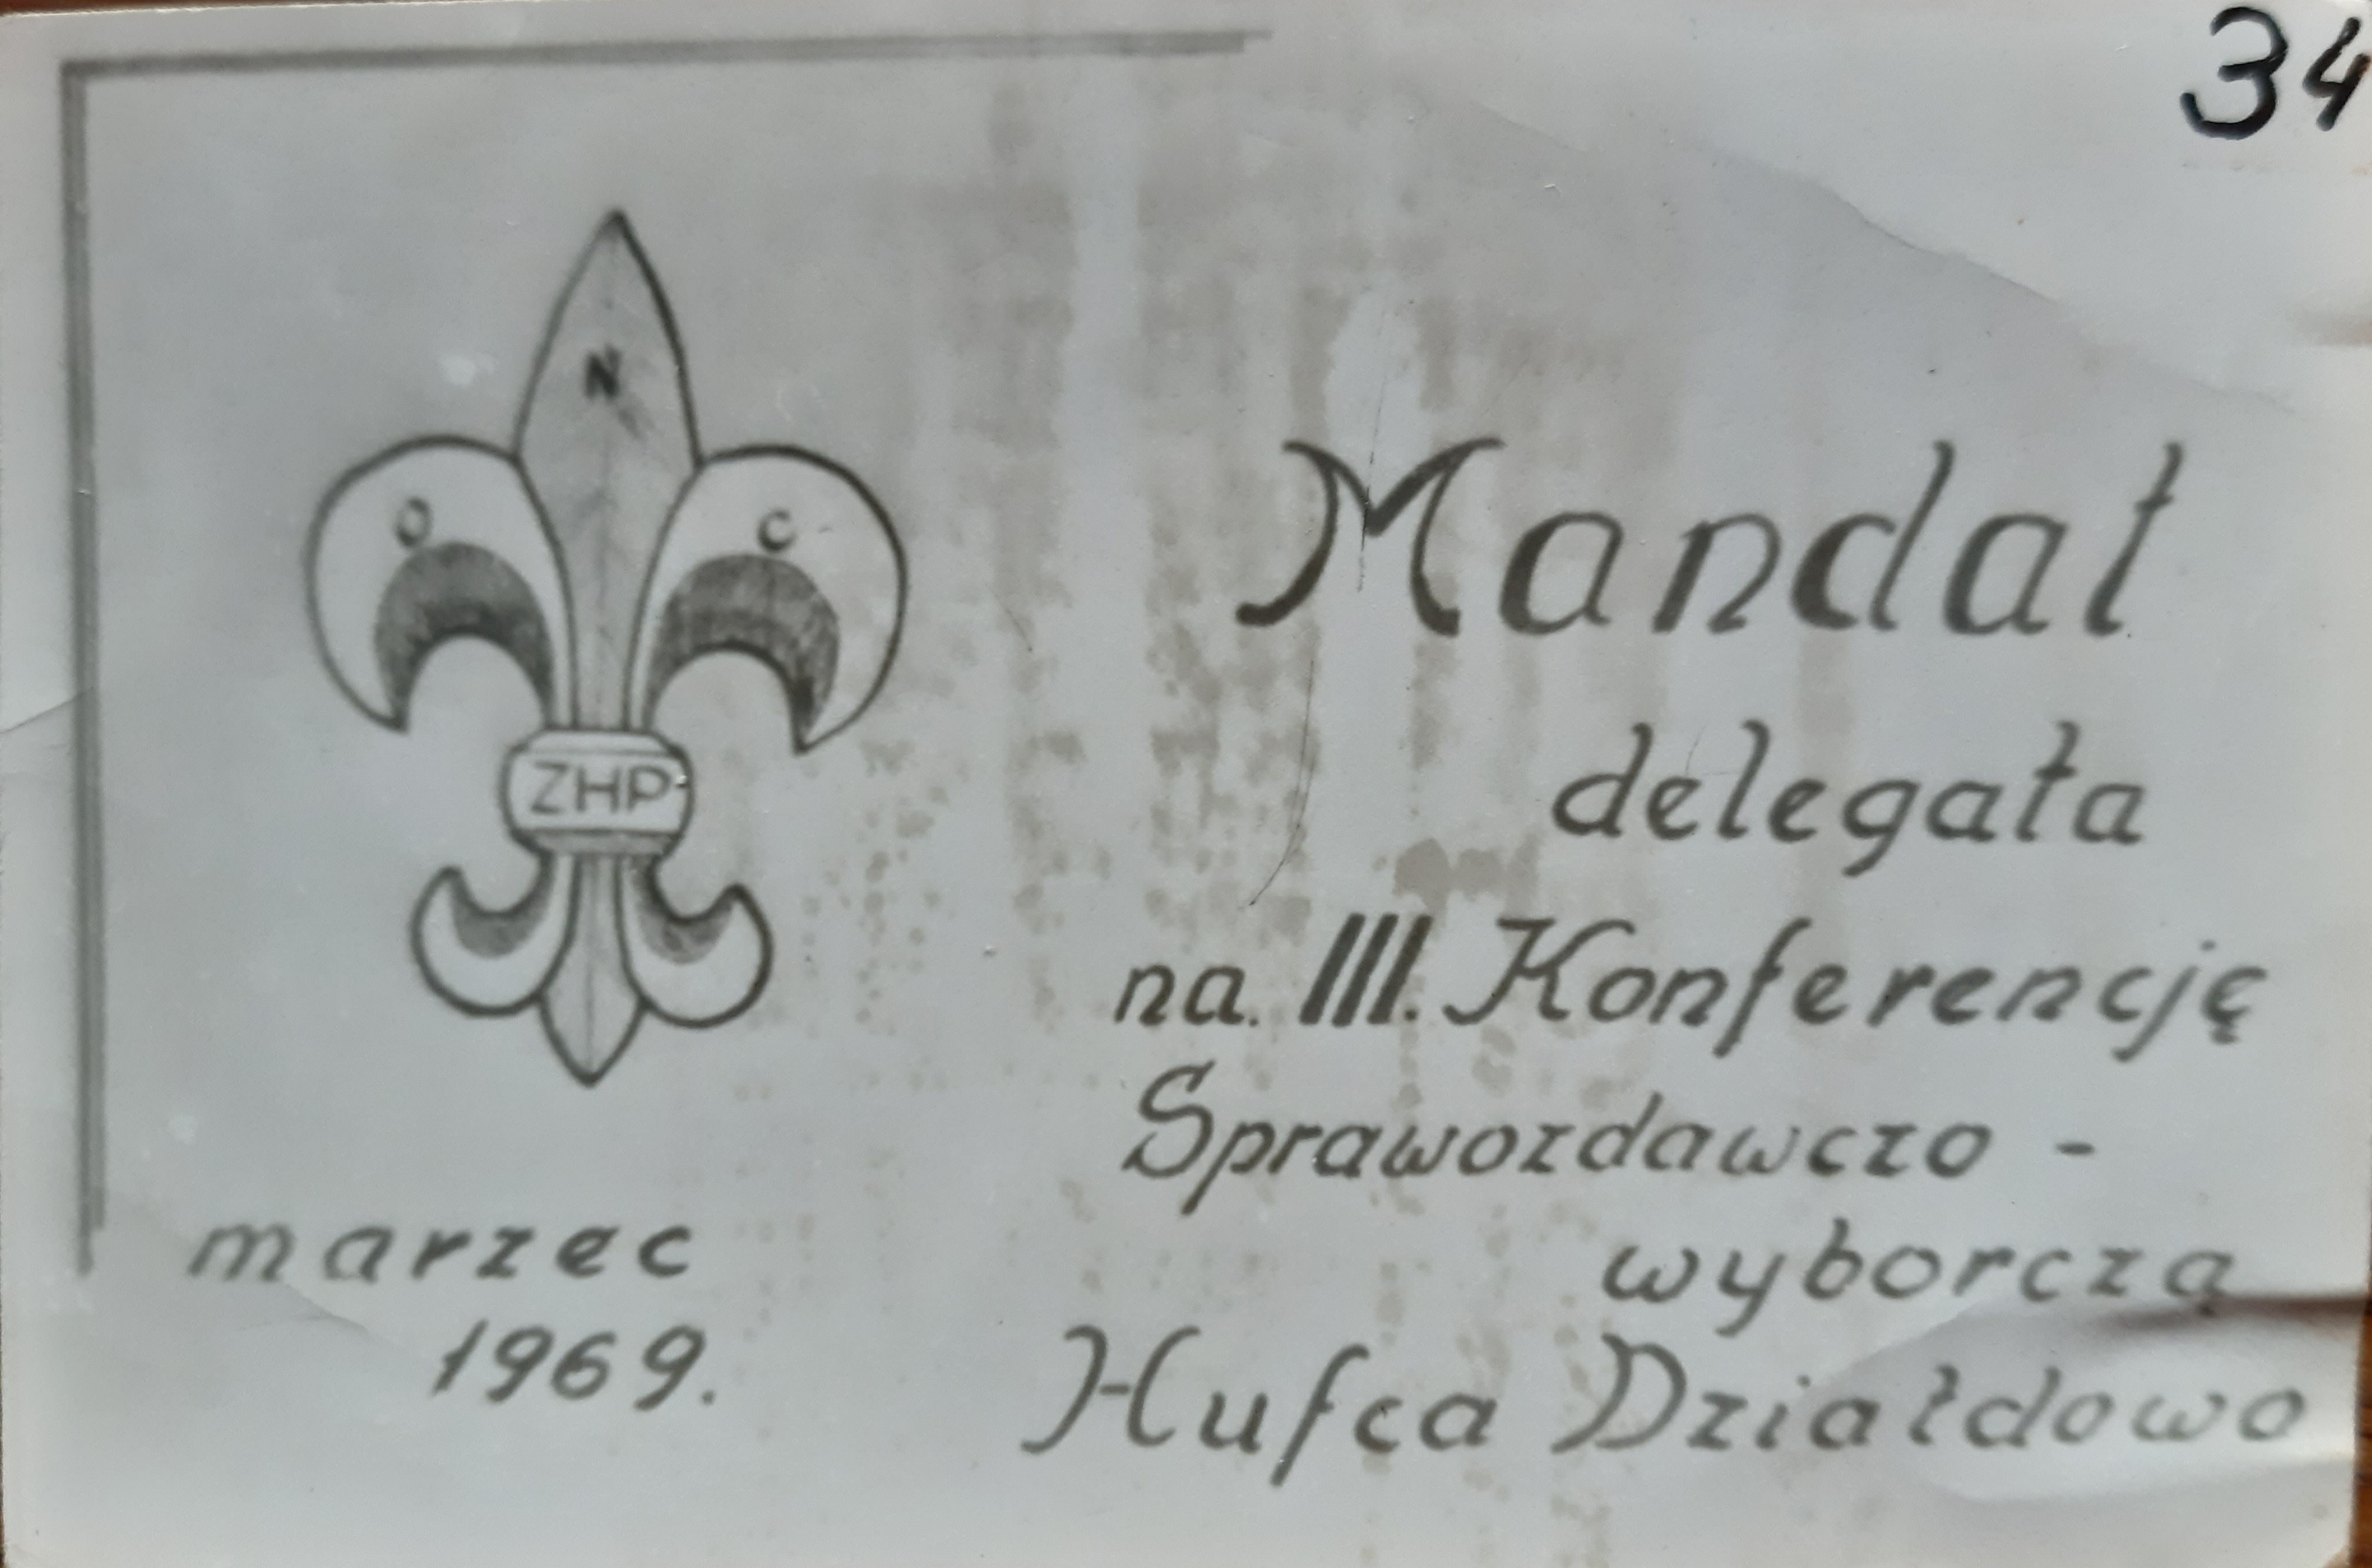 34
N
O C
ZHP
Mandat
delegata
na. III. Konferencję
Sprawozdawczo -
wyborczą
Hufca Działdowo
marzec
1969.